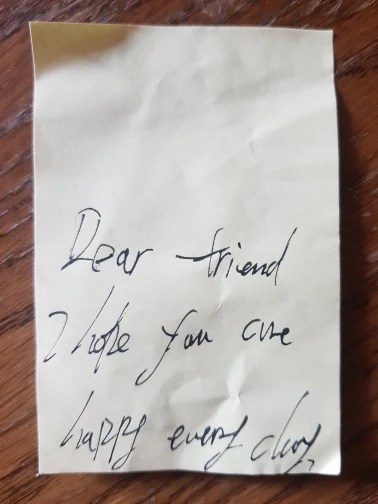 Dear friend
I hope you are
happy every day.